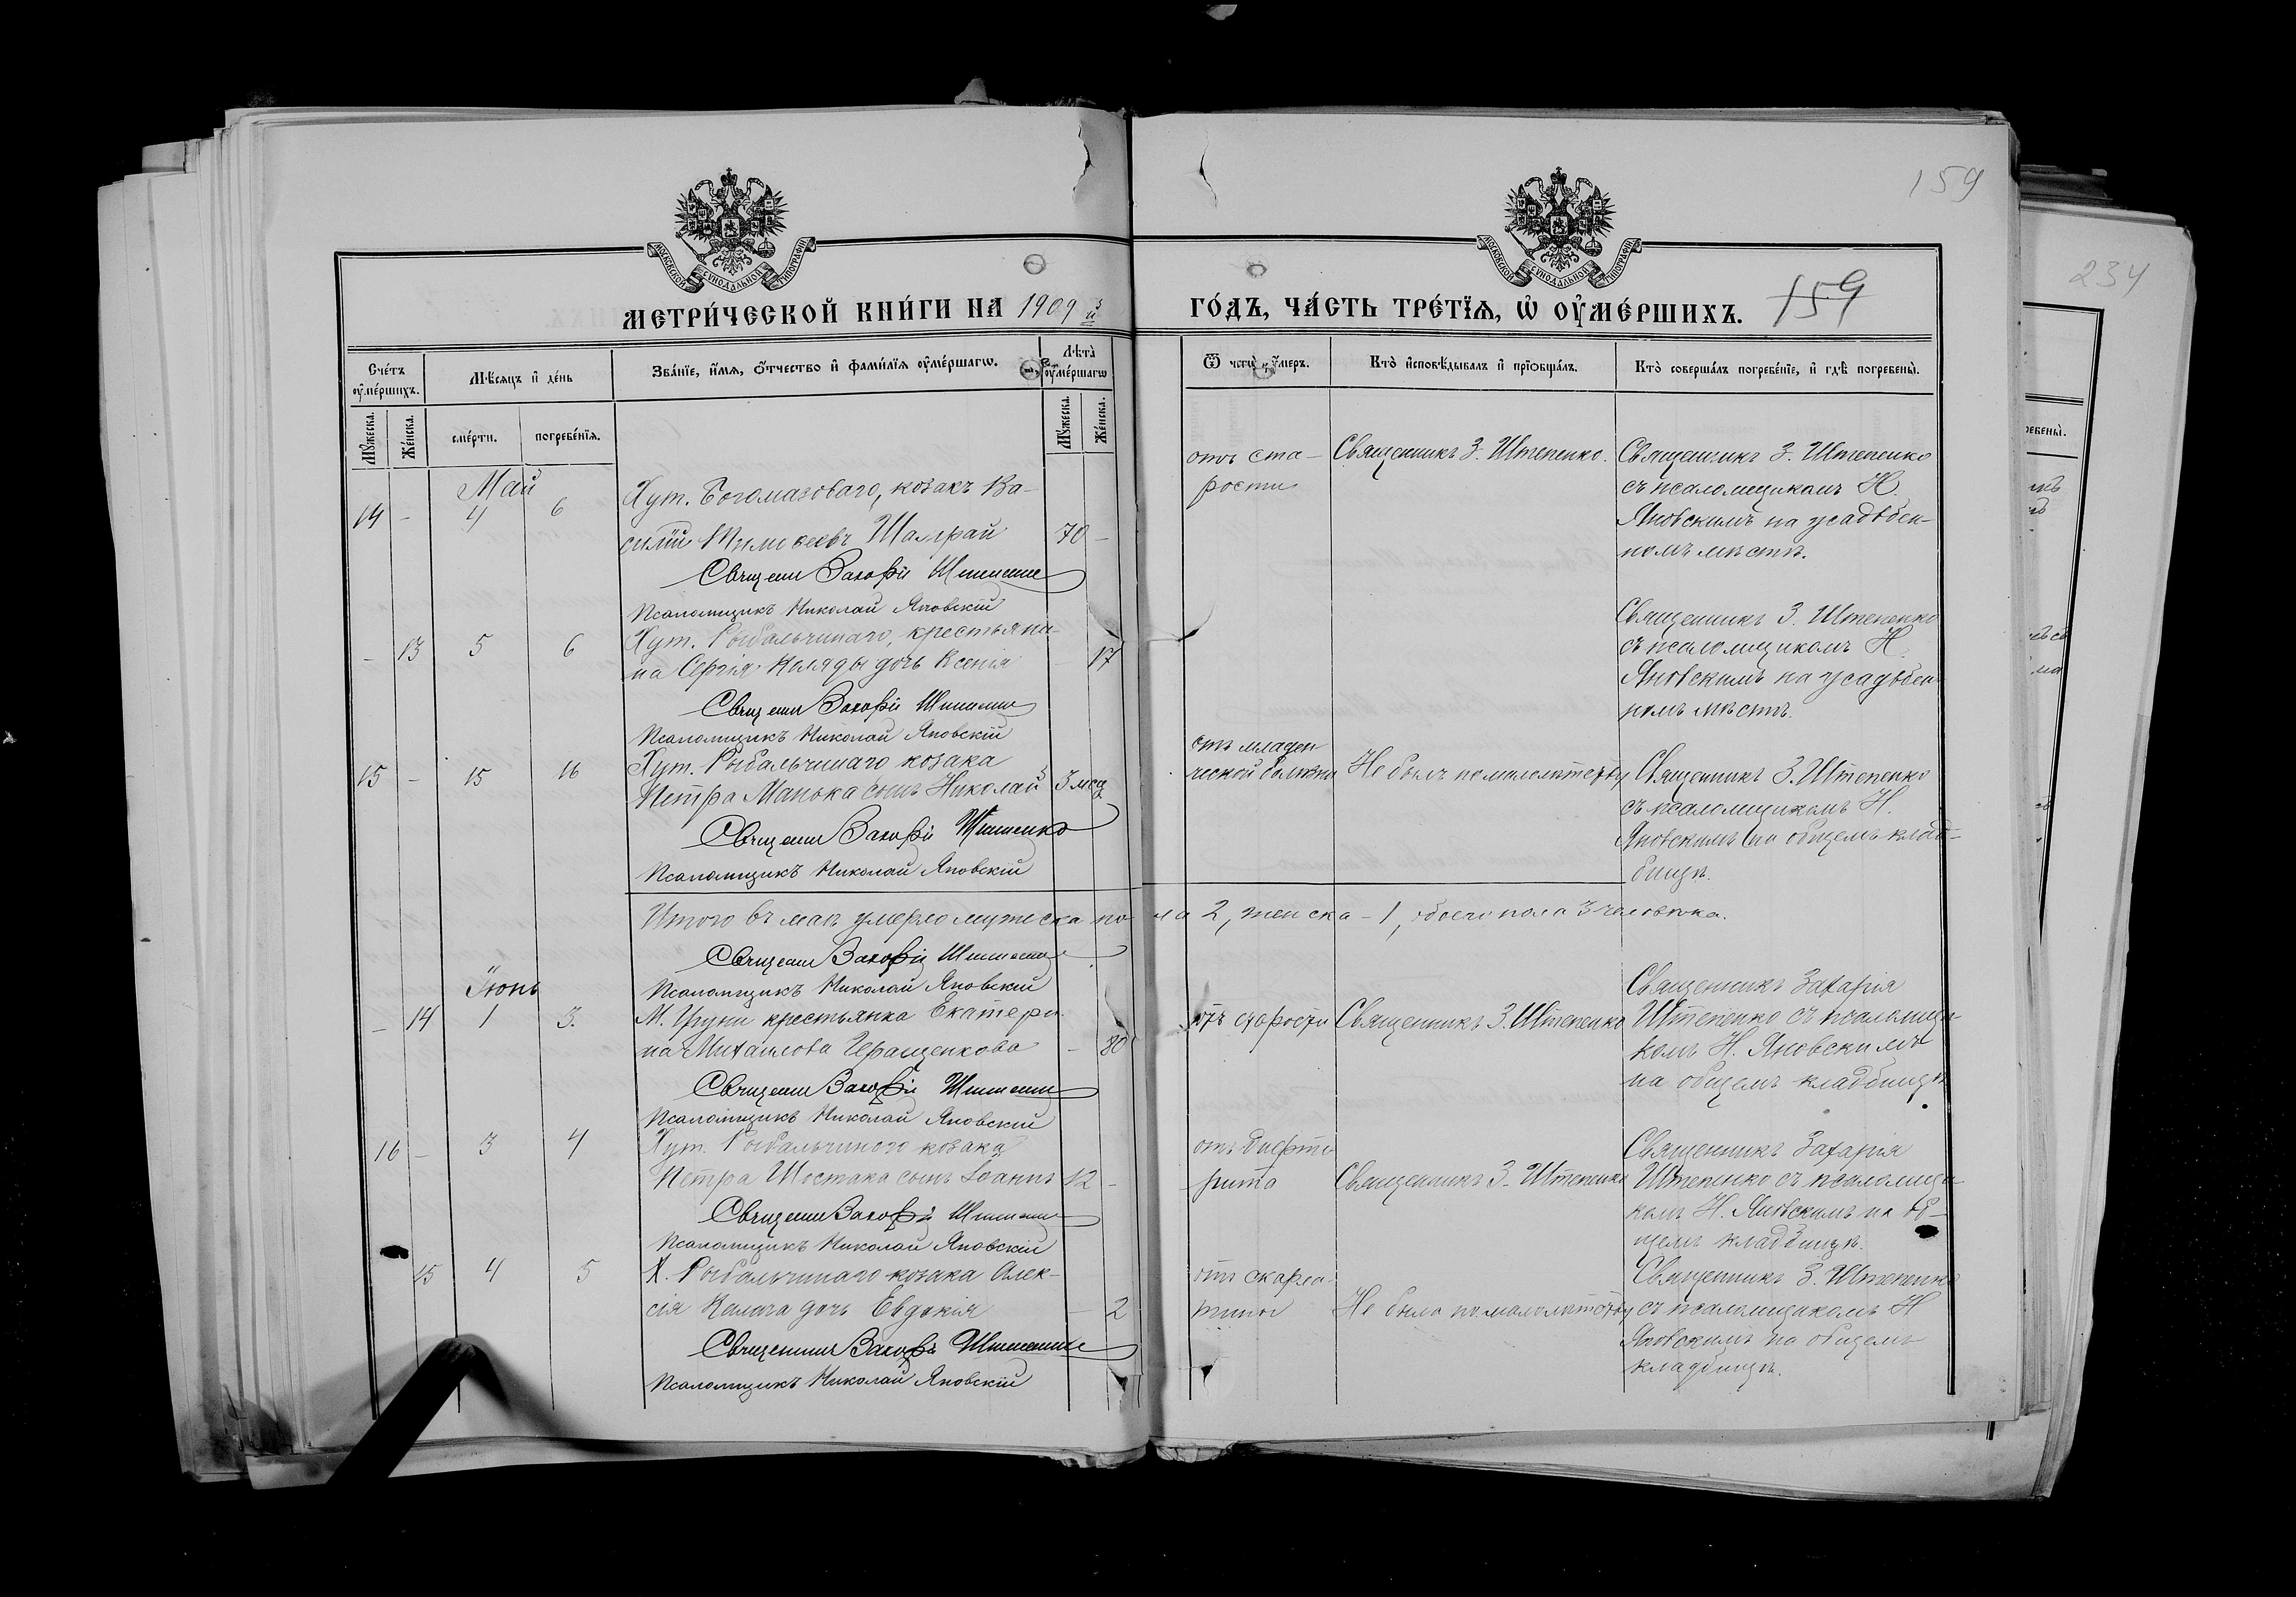 159
234
МОСКОВСКОЙ СѴНОДАЛЬНОЙ ТИПОГРАФІИ
МОСКОВСКОЙ СѴНОДАЛЬНОЙ ТИПОГРАФІИ
МЕТРИ́ЧЕСКОЙ КНИ́ГИ НА 1909 й
ГО́ДЪ, ЧА́СТЬ ТРЕ́ТЇѦ, Ѡ҆ ОУ҆МЕ́РШИХЪ. 159
Сче́тъ оу҆ме́ршихъ.
Мѣ́сяцъ и҆ де́нь
Зва́нїе, и҆́мѧ, ѻ҆́тчество и҆ фами́лїѧ оу҆ме́ршагѡ.
Лѣ̀та оу҆ме́ршагѡ
Ѿ чегѡ̀ оу҆́меръ.
Кто̀ и҆сповѣ́дывалъ и҆ прїѻбща́лъ.
Кто̀ соверша́лъ погребе́нїе, и҆ гдѣ̀ погребены̀.
Мꙋ́жеска.
Же́нска.
сме́рти.
погребе́нїѧ.
Мꙋ́жеска.
Же́нска.
Май
14 - 4 6 Хут. Богомазоваго, козакъ Ва-
силій Тимофеевъ Шамрай 70 -
Священ Захарій Штепенко
Псаломщикъ Николай Яновскій
отъ ста-
рости
Священникъ З. Штепенко.
Священникъ З. Штепенко
съ псаломщикомъ Н.
Яновскимъ на усадьбен-
номъ мѣстѣ.
- 13 5 6 Хут. Рыбальчинаго, крестьяни-
на Сергія Коляды дочь Ксенія - 17
Священ Захарій Штепенко
Псаломщикъ Николай Яновскій
Священникъ З. Штепенко
съ псаломщикомъ Н.
Яновскимъ на усадьбен
номъ мѣстѣ.
15 - 15 16 Хут. Рыбальчинаго козака
Петра Манька сынъ Николай 3 мѣс.
Священ Захарій Штепенко
Псаломщикъ Николай Яновскій
отъ младен
ческой болѣзни
Не былъ по малолѣтству
Священникъ З. Штепенко
съ псаломщикомъ Н.
Яновскимъ на общемъ клад-
бищѣ.
Итого въ маѣ умерло мужеска пола 2, женска - 1, обоего пола 3 человѣка.
Священ Захарій Штепенко
Псаломщикъ Николай Яновскій
Іюнь
- 14 1 3. М. Груни крестьянка Екатери
на Михаилова Геращенкова - 80
Священ Захарій Штепенко
Псаломщикъ Николай Яновскій
отъ старости
Священникъ З. Штепенко
Священникъ Захарія
Штепенко съ псаломщи-
комъ Н. Яновскимъ
на общемъ кладбищѣ.
16 - 3 4 Хут. Рыбальчиного козака
Петра Шостака сынъ Іоаннъ 12 -
Священ Захарій Штепенко
Псаломщикъ Николай Яновскій
отъ дифте
рита
Священникъ З. Штепенко
Священникъ Захарія
Штепенко съ псаломщи
комъ Н. Яновскимъ на об-
щемъ кладбищѣ.
15 4 5 Х. Рыбальчинаго козака Алек-
сія дочь Евдокія - 2
Священникъ Захарій Штепенко
Псаломщикъ Николай Яновскій
отъ скарла-
тины
Не была по малолѣтству
Священникъ З. Штепенко
съ псаломщикомъ Н
Яновскимъ на общемъ
кладбищѣ.